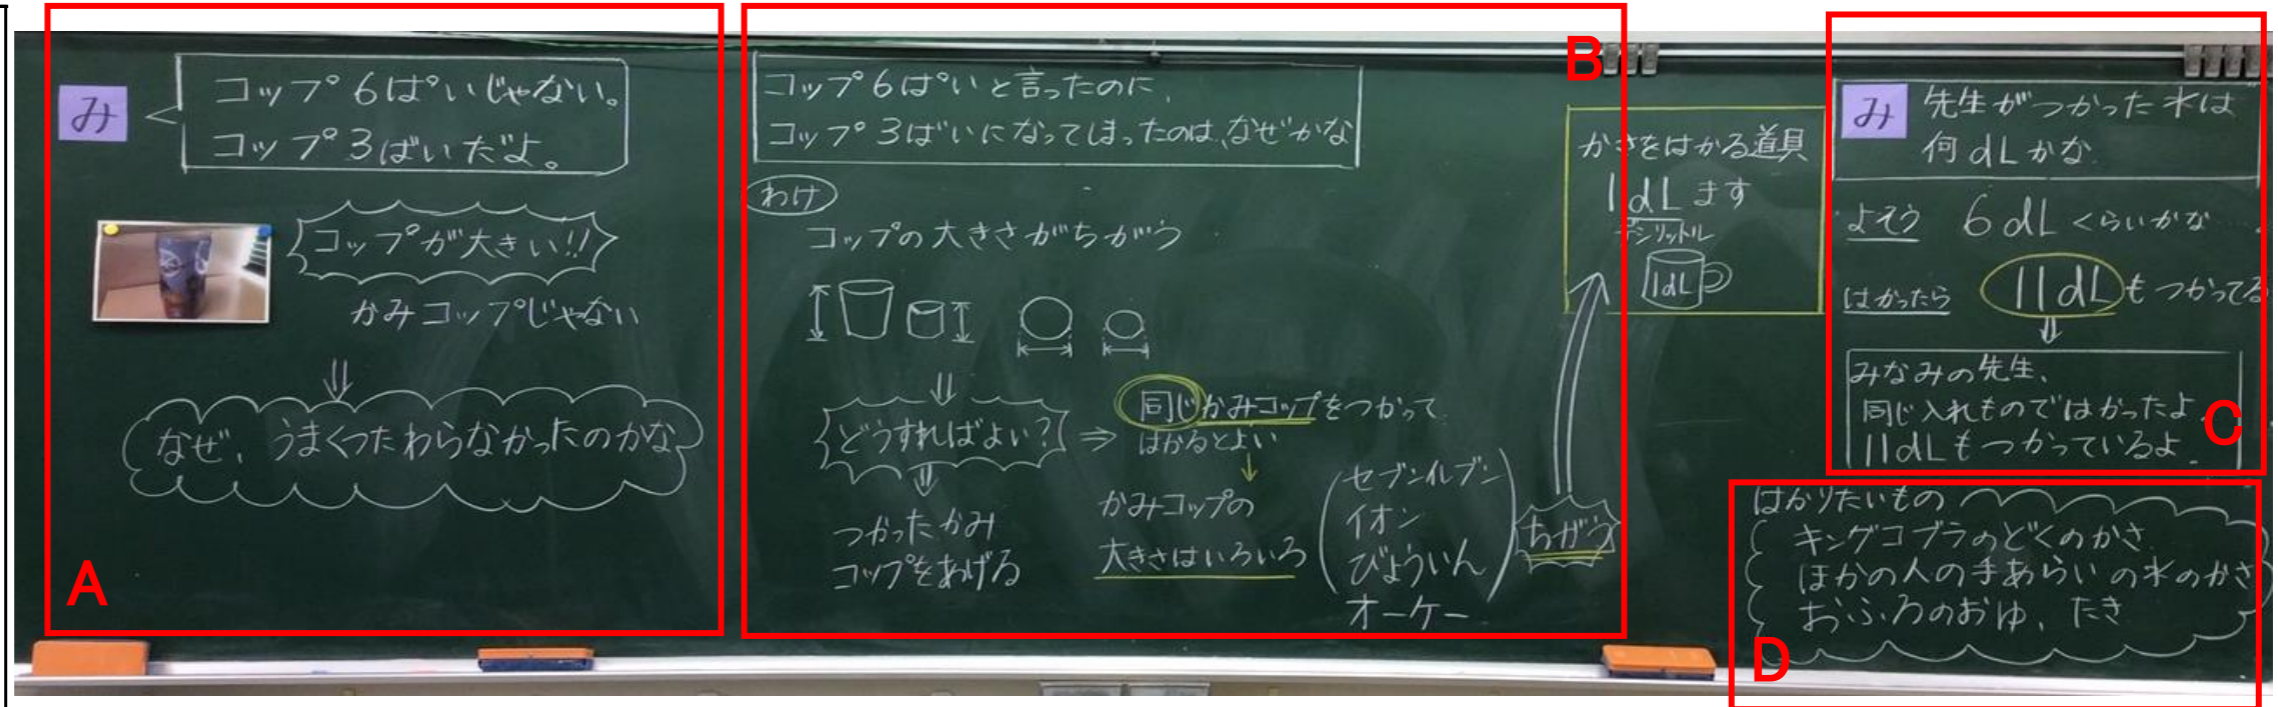 み
コップ6ぱいじゃない。
コップ3ばいだよ。
コップが大きい!!
かみコップじゃない
⇓
なぜ、うまくつたわらなかったのかな
A
コップ6ぱいと言ったのに、
コップ3ばいになってしまったのは、なぜかな
わけ
コップの大きさがちがう
⇓
どうすればよい?
⇒
同じかみコップをつかって
はかるとよい
⇓
つかったかみ
コップをあげる
↓
かみコップの
大きさはいろいろ
セブンイレブン
イオン
びょういん
オーケー
ちがう
B
かさをはかる道具
1dLます
デシリットル
1dL
み
先生がつかった水は
何dLかな
よそう 6dLくらいかな
はかったら 11dLもつかってる
⇓
みなみの先生、
同じ入れものではかったよ
11dLもつかっているよ
C
はかりたいもの
キングコブラのどくのかさ
ほかの人の手あらいの水のかさ
おふろのおゆ、たき
D